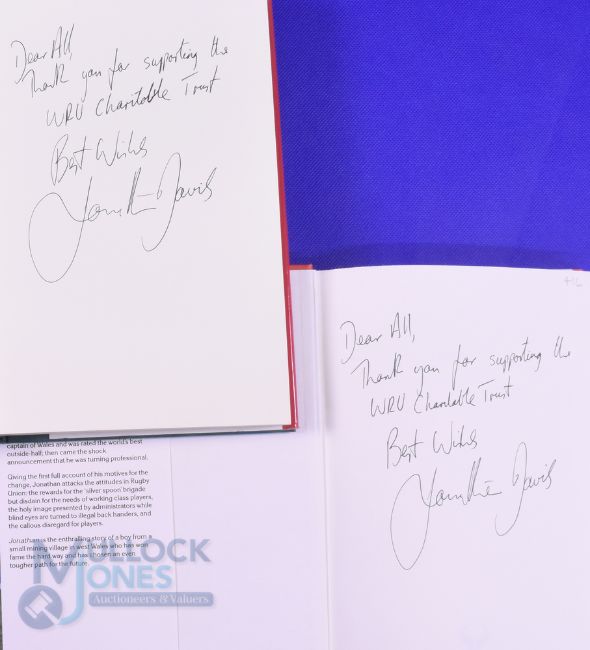 Dear All,
Thank you for supporting the
WRU Charitable Trust
Best Wishes
Jonathan Davis
416
Dear All,
Thank you for supporting the
WRU Charitable Trust
Best Wishes
Jonathan Davis
captain of Wales and was rated the world's best
outside-half; then came the shock
announcement that he was turning professional.
Giving the first full account of his motives for the
change, Jonathan attacks the attitudes in Rugby
Union: the rewards for the 'silver spoon' brigade
but disdain for the needs of working class players,
the holy image presented by administrators while
blind eyes are turned to illegal back handers, and
the callous disregard for players.
Jonathan is the enthralling story of a boy from a
small mining village in west Wales who has won
fame the hard way and has chosen an even
tougher path for the future.
MULLOCK
JONES
Auctioneers & Valuers